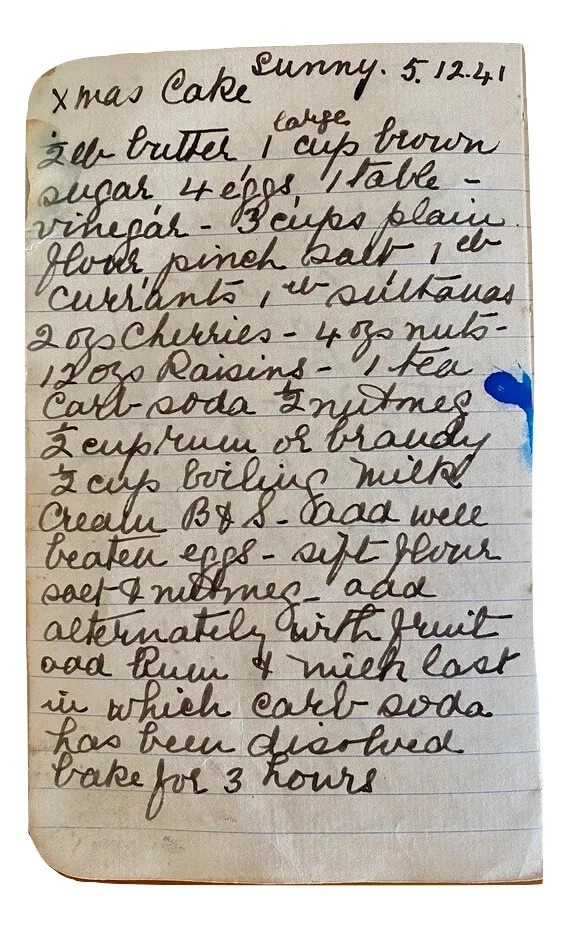 Xmas Cake Sunny. 5.12.41
½ lb butter, 1 large cup brown
sugar, 4 eggs, 1 table -
vinegar - 3 cups plain
flour, pinch salt, 1 lb
currants, 1 lb sultanas
2 ozs Cherries - 4 ozs nuts -
12 ozs Raisins - 1 tea
carb soda ½ nutmeg
½ cup rum or brandy
½ cup boiling milk
Cream B & S - add well
beaten eggs - sift flour
salt & nutmeg - add
alternately with fruit
add Rum & milk last
in which carb soda
has been disolved
bake for 3 hours